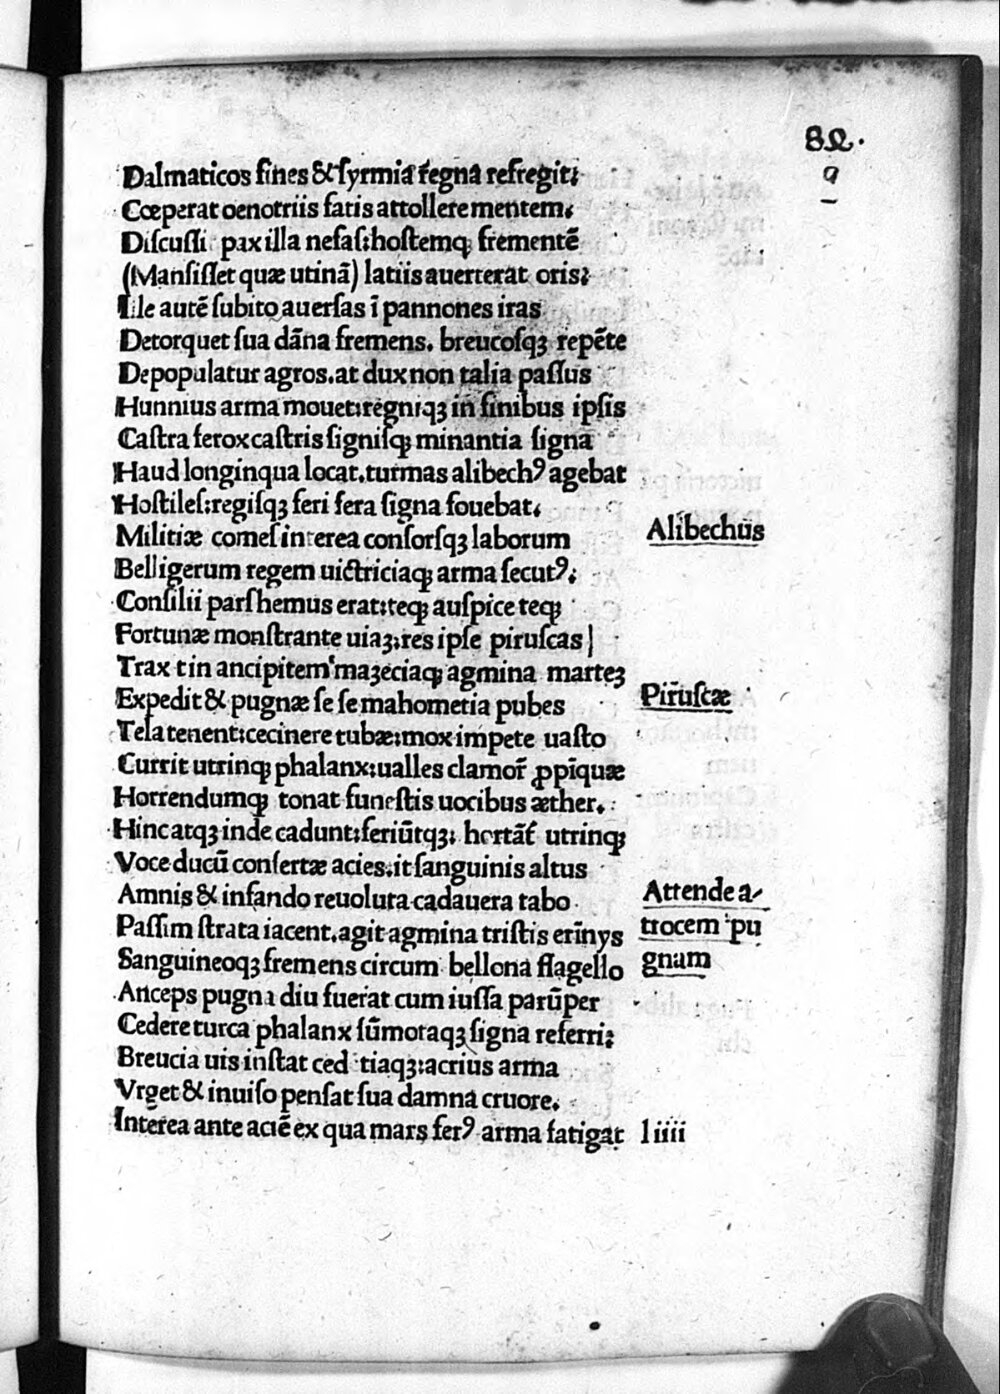 82.
9
Dalmaticos fines & ſyrmiā r̄egna refregit;
Cœperat oenotriis fatis attollere mentem.
Diſcuſſi pax illa nefaſ:hoſtemq; frementē
(Manſiſſet quæ utinā) latiis auerterat oris;
Ille autē ſubito auerſas ī pannones iras
Detorquet ſua dāna fremens. breucoſqꝫ repēte
Depopulatur agros.at dux non talia paſſus
Hunnius arma mouet:regniqꝫ in finibus ipſis
Caſtra ferox caſtris ſigniſq; minantia ſigna
Haud longinqua locat.turmas alibechꝰ agebat
Hoſtileſ:regiſqꝫ feri fera ſigna fouebat.
Alibechus
Militiæ comeſ interea conſorſqꝫ laborum
Belligerum regem uictriciaq; arma ſecutꝰ;
Conſilii parſ hemus erat:teq; auſpice teq;
Fortunæ monſtrante uiaꝫ:res ipſe piruſcas
Traxit in ancipitem maꝫeciaq; agmina marteꝫ
Expedit & pugnæ ſe ſe mahometia pubes
Piruſcæ
Tela tenent:cecinere tubæ:mox impete uaſto
Currit utrinq; phalanx:ualles clamor̄ ꝓpīquæ
Horrendumq; tonat funeſtis uocibus æther.
Hinc atqꝫ inde cadunt:feriūtqꝫ: hortāt̄ utrinq;
Voce ducū confertæ acies.it ſanguinis altus
Amnis & infando reuoluta cadauera tabo
Attende a-
trocem pu
gnam
Paſſim ſtrata iacent.agit agmina triſtis erīnys
Sanguineoqꝫ fremens circum bellona flagello
Anceps pugna diu fuerat cum iuſſa parūper
Cedere turca phalanx ſūmotaqꝫ ſigna referri;
Breucia uis inſtat ced tiaqꝫ:acrius arma
Vrget & inuiſo penſat ſua damna cruore.
Interea ante aciē ex qua mars ferꝰ arma fatigat
l iiii